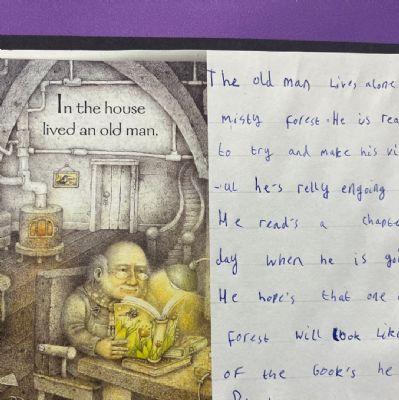 In the house
lived an old man.
The old man lives alone
misty forest. He is rea
to try and make his vi
he's relly engoying
He read's a chapte
day when he is goi
He hope's that one
forest will look like
of the book's he